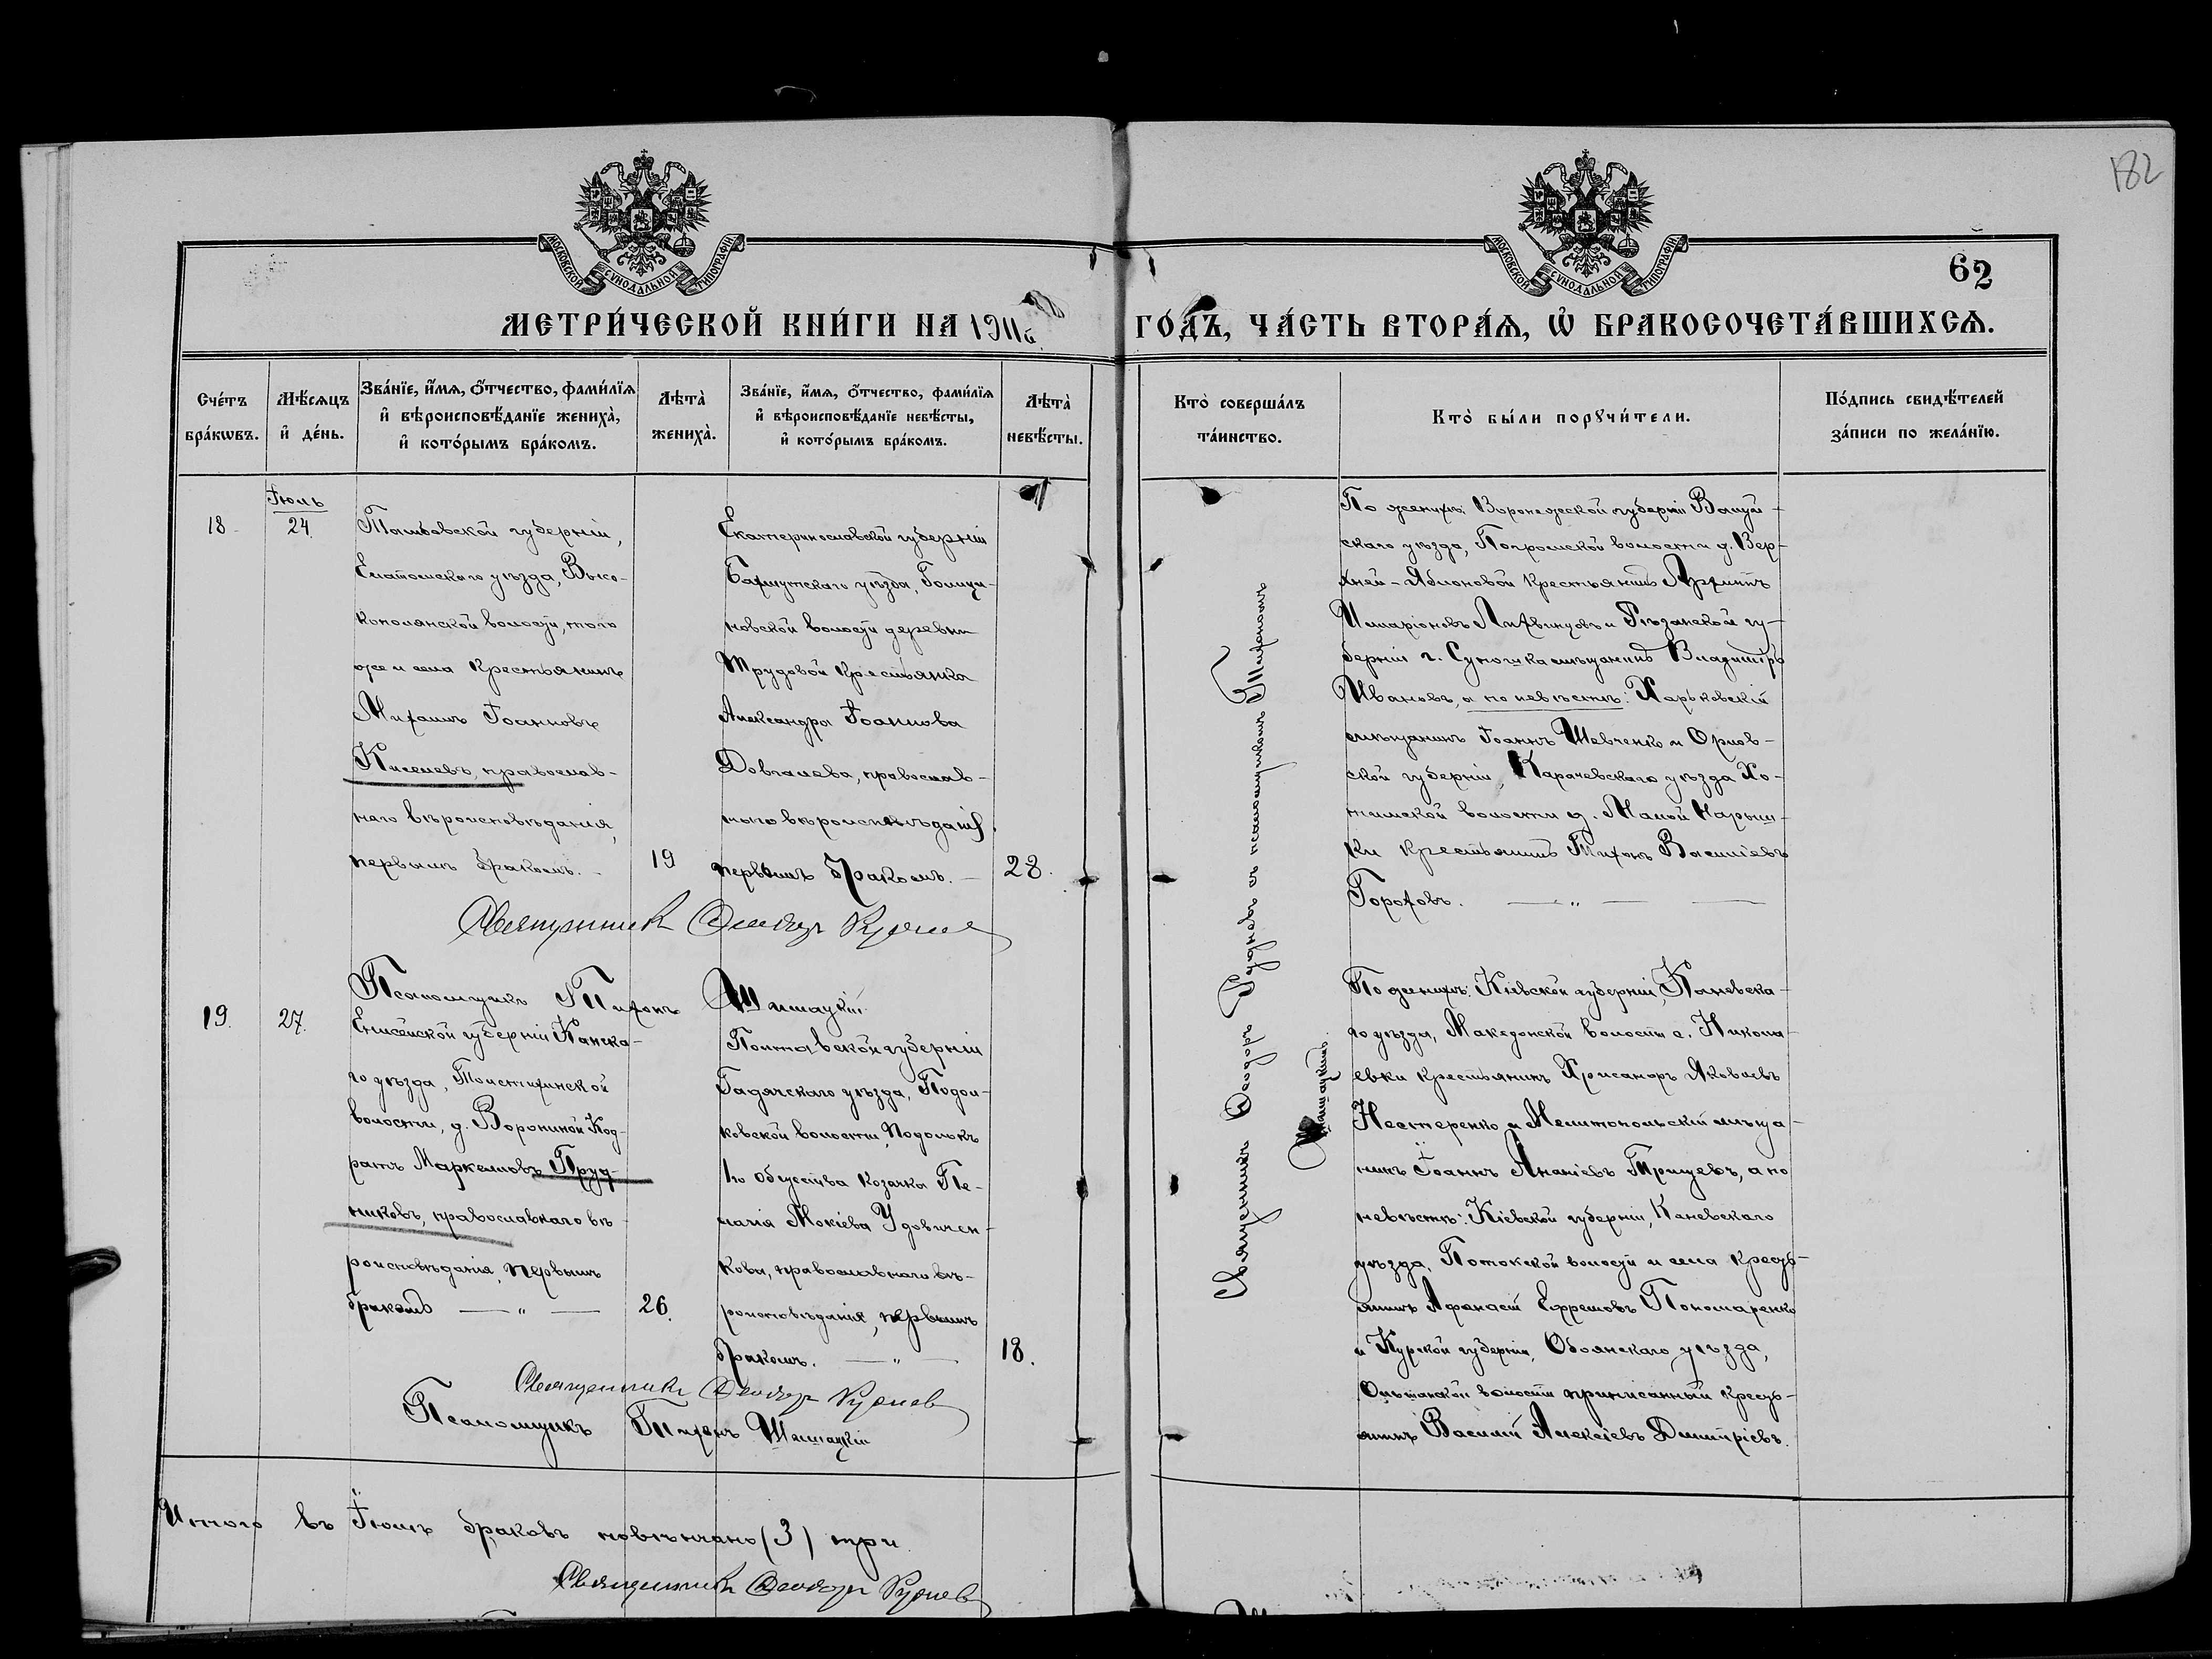 182
МОСКОВСКОЙ СѴНОДАЛЬНОЙ ТИПОГРАФІИ
МОСКОВСКОЙ СѴНОДАЛЬНОЙ ТИПОГРАФІИ
62
МЕТРИ́ЧЕСКОЙ КНИ́ГИ НА 1911
ГО́ДЪ, ЧА́СТЬ ВТОРА́Ѧ, Ѡ҆ БРАКОСОЧЕТА́ВШИХСѦ.
Сче́тъ
бра́кѡвъ.
Мѣ́сѧцъ
и҆ де́нь.
Зва́нїе, и҆́мѧ, ѻ҆́тчество, фами́лїѧ
и҆ вѣроисповѣ́данїе жениха̀,
и҆ кото́рымъ бра́комъ.
Лѣта̀
жениха̀.
Зва́нїе, и҆́мѧ, ѻ҆́тчество, фами́лїѧ
и҆ вѣроисповѣ́данїе невѣ́сты,
и҆ кото́рымъ бра́комъ.
Лѣта̀
невѣ́сты.
Кто̀ соверша́лъ
та́инство.
Кто̀ бы́ли порꙋчи́тели.
По́дпись свидѣ́телей
за́писи по жела́нїю.
18
Іюль
24
Тамбовской губерніи,
Елатомскаго уѣзда, Высо-
кополянской волости, того
же и села крестьянинъ
Михаилъ Іоанновъ
Киселевъ, православ-
наго вѣроисповѣданія,
первымъ бракомъ.
19
Екатеринославской губерніи
Бахмутскаго уѣзда, Голици-
новской волости деревни
Трудовой крестьянка
Александра Іоаннова
Довгалева, православ-
наго вѣроисповѣданія,
первымъ бракомъ.
28.
Священникъ Ѳеодоръ Руднев
По женихѣ: Воронежской губерніи Валуй-
скаго уѣзда, Погромской волости д. Вер-
хней-Яблоновой крестьянинъ
Илларіоновъ Литвинцовъ и Рязанской гу-
берніи г. мѣщанинъ Владиміръ
Ивановъ, а по невѣстѣ: Харьковскій
мѣщанинъ Іоаннъ Шевченко и Орлов-
ской губерніи, Карачевскаго уѣзда Хо-
тимской волости д. Малой Нарыш-
ки крестьянинъ Тихонъ Василіевъ
Горохов.
Священникъ Ѳеодоръ Рудневъ съ псаломщикомъ Тихономъ
Шашацкимъ
19.
27.
Псаломщикъ Тихонъ
Енисейской губерніи Канска-
го уѣзда, Толстихинской
волости, д. Ворониной Код-
ратъ Маркелловъ Пруд-
никовъ, православнаго вѣ-
роисповѣданія, первымъ
бракомъ
26.
Шашацкій
Полтавской губерніи
Гадячскаго уѣзда, Подол-
ковской волости, Подолокъ
1го общества козачка Пе-
лагія Мокіева Удовичен-
кова, православнаго вѣ-
роисповѣданія, первымъ
бракомъ.
18.
По женихѣ: Кіевской губерніи, Каневска-
го уѣзда, Македонской волости с. Никола-
евки крестьянинъ Хрисанфъ Яковлевъ
Нестеренко и Мелитопольскій мѣща-
нинъ Іоаннъ Ананіевъ Грищевъ, а по
невѣстѣ: Кіевской губерніи, Каневскаго
уѣзда, Потокской волости и села кресть-
янинъ Афанасій Ефремовъ Пономаренко
и Курской губерніи, Обоянскаго уѣзда,
волости приписанный кресть-
янинъ Василій Алексіевъ Димитріевъ.
Священникъ Ѳеодоръ Руднев
Псаломщикъ Тихонъ Шашацкій
Итого въ Іюлѣ браковъ повѣнчано (3) три.
Священникъ Ѳеодоръ Руднев